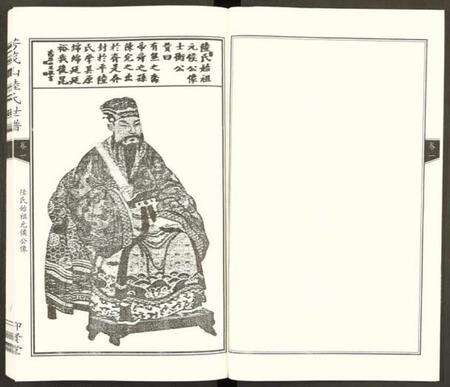 陸氏始祖
元侯公像
士衡公
贊曰
有熊之裔
帝舜之孫
陳完之世
於齊是奔
封於平陸
氏肇其原
綿綿延延
裕我後昆
山陸氏世譜
卷一
陸氏始祖元侯公像
卷一